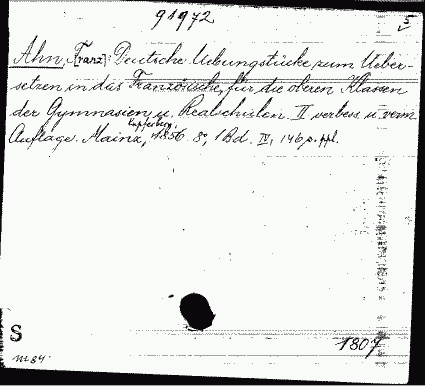 91972
5
Ahn, [Franz]: Deutsche Uebungstücke zum Ueber-
setzen in das Französische, für die oberen Klassen
der Gymnasien u. Realschulen. II verbess. u. verm.
Auflage. Mainz, Kupferberg, 1856. 8°, 1 Bd. IV, 146 p. ppl.
S
1807
m 84.